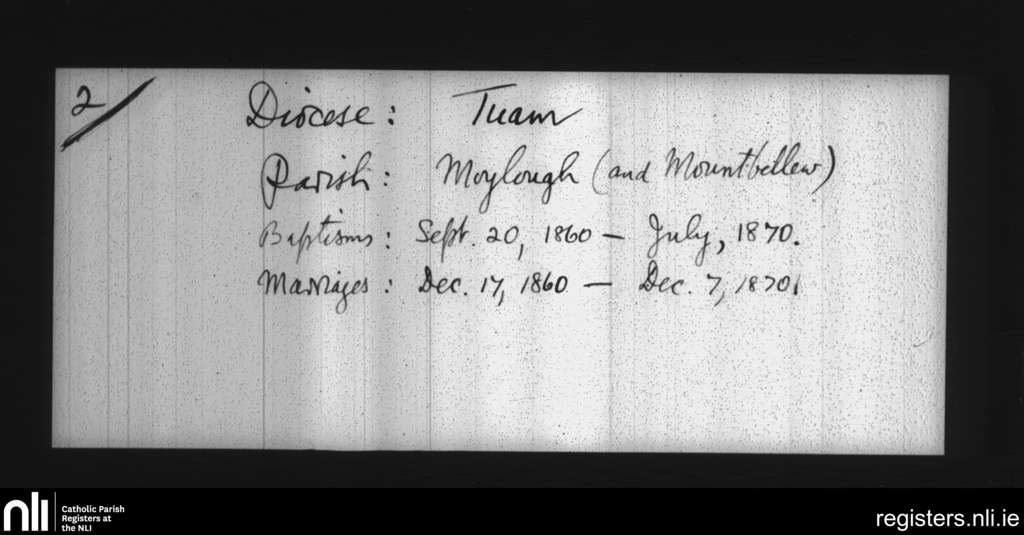 2/
Diocese: Tuam
Parish: Moylough (and Mountbellew)
Baptisms: Sept. 20, 1860 – July, 1870.
Marriages: Dec. 17, 1860 – Dec. 7, 1870.
nli
Catholic Parish
Registers at
the NLI
registers.nli.ie